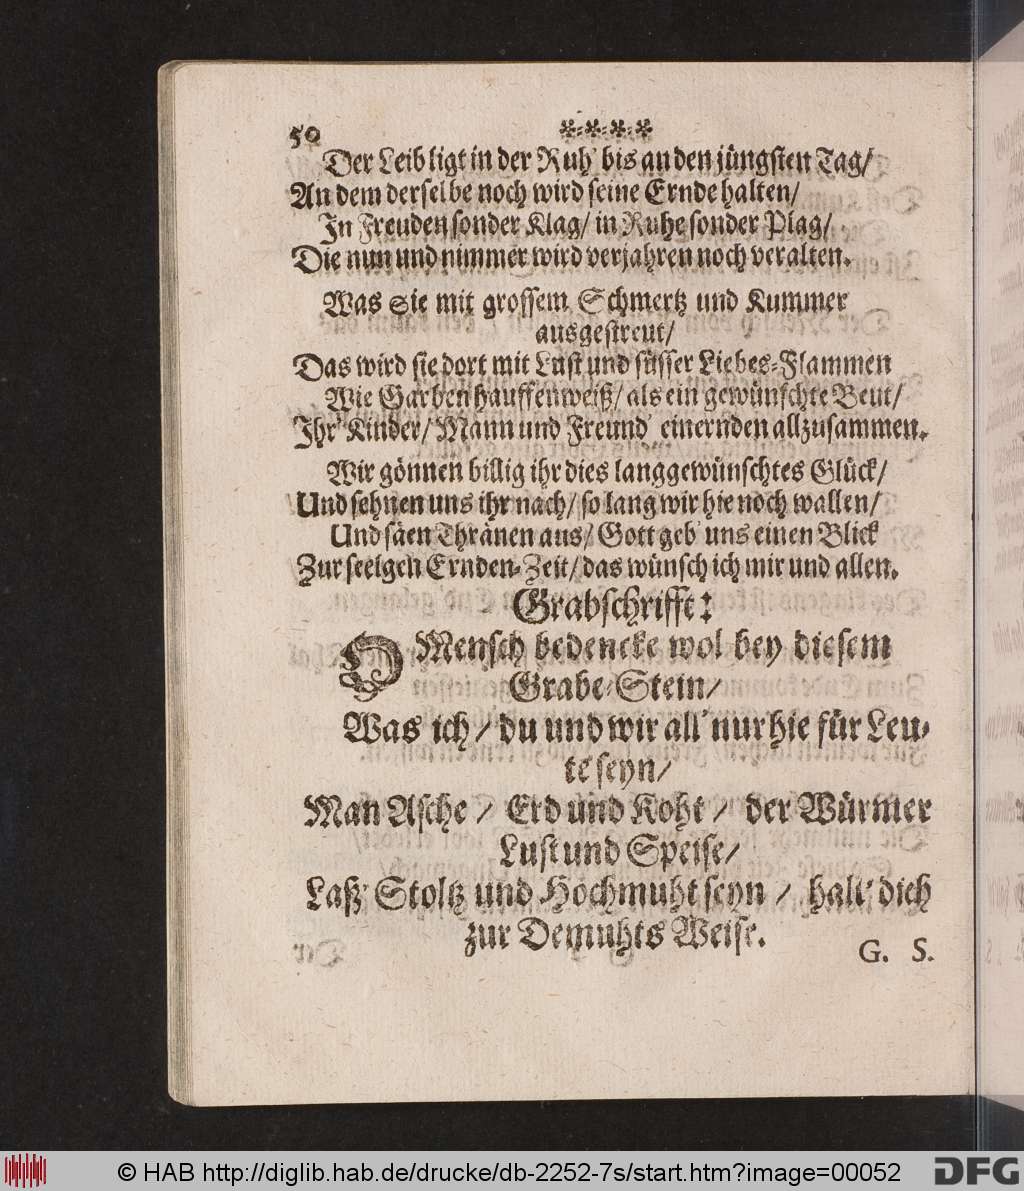 50
Der Leib ligt in der Ruh' bis an den jüngsten Tag/
An dem derselbe noch wird seine Ernde halten/
In Freuden sonder Klag/ in Ruhe sonder Plag/
Die nun und nimmer wird verjahren noch veralten.
Was Sie mit grossem Schmertz und Kummer
ausgestreut/
Das wird sie dort mit Lust und süsser Liebes-Flammen
Wie Garben hauffenweiß/ als ein gewünschte Beut/
Ihr' Kinder/ Mann und Freund' einernden allzusammen.
Wir gönnen billig ihr dies langgewünschtes Glück/
Und sehnen uns ihr nach/ so lang wir hie noch wallen/
Und säen Thränen aus/ Gott geb' uns einen Blick
Zur seelgen Ernden-Zeit/ das wünsch ich mir und allen.
Grabschrifft:
O Mensch bedencke wol bey diesem
Grabe-Stein/
Was ich/ du und wir all' nur hie für Leu-
te seyn/
Man Asche/ Erd und Koht/ der Würmer
Lust und Speise/
Laß' Stoltz und Hochmuht seyn/ halt' dich
zur Demuhts Weise.
G. S.
© HAB http://diglib.hab.de/drucke/db-2252-7s/start.htm?image=00052
DFG